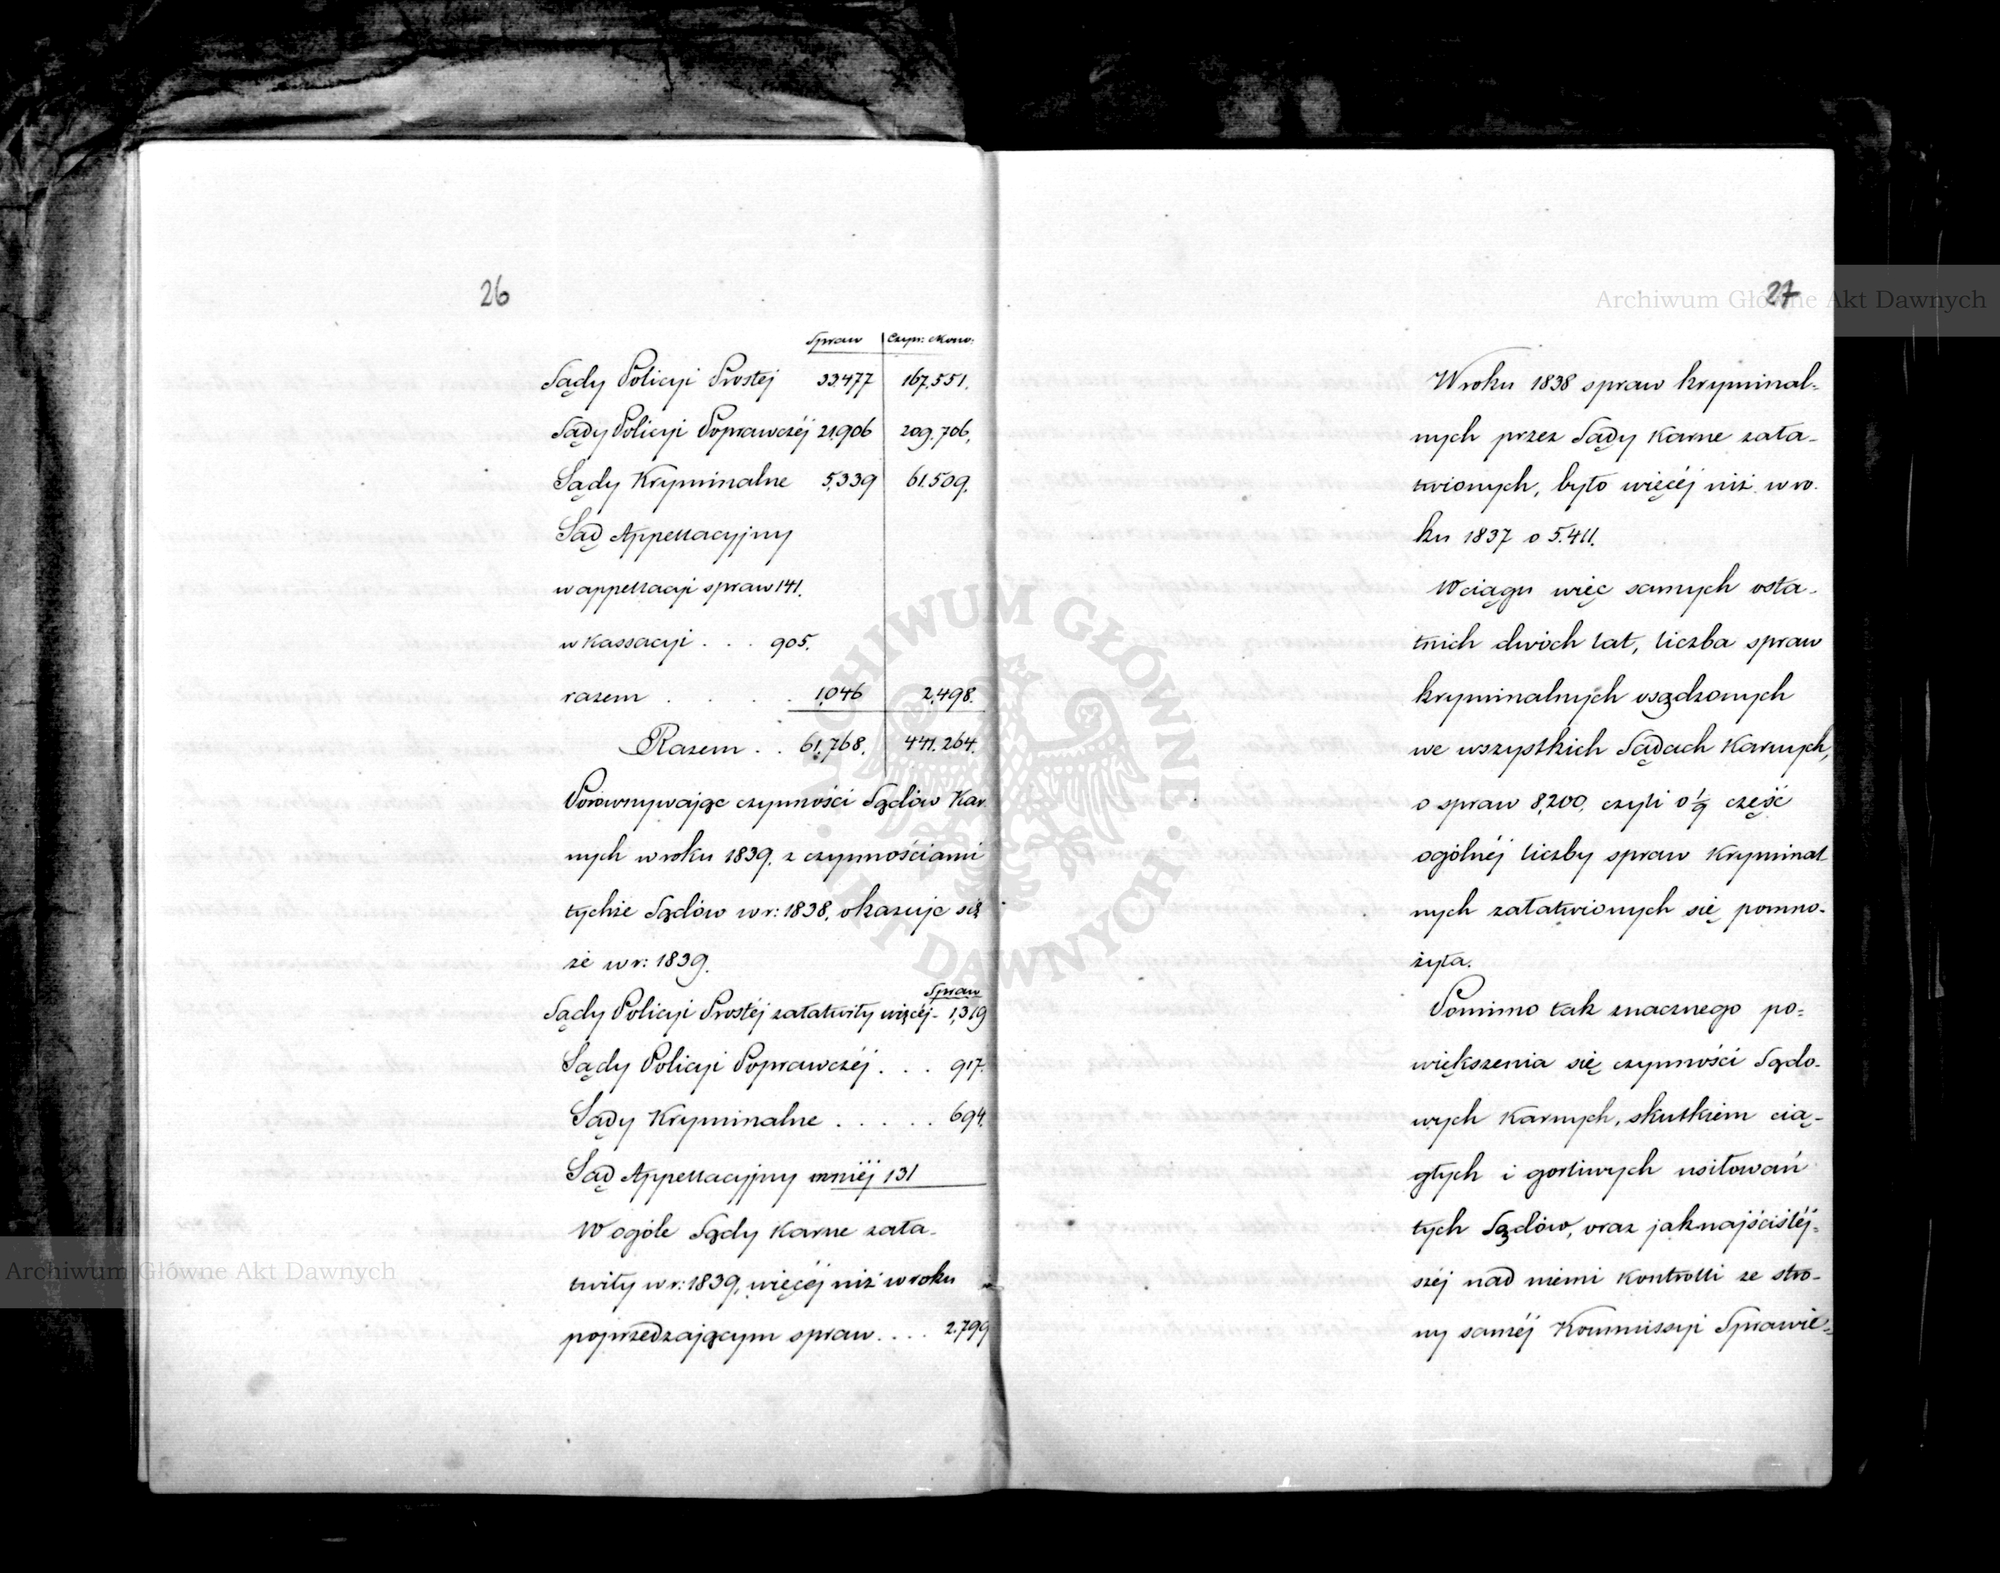 26
Spraw Czyn: ekono:
Sądy Policyi Prostéj 33.477 167.551.
Sądy Policyi Poprawczéj 21.906 209.706.
Sądy Kryminalne 5.339 61.509.
Sąd Appellacyjny
w appellacyi spraw 141.
w Kassacyi . . . 905.
razem . . . . 1,046 2,498.
Razem . . 61,768. 441.264.
Porównywając czynności Sądów Kar
nych w roku 1839. z czynnościami
tychże Sądów w r: 1838, okazuje się
że w r: 1839.
Spraw
Sądy Policyi Prostéj załatwiły więcéj - 1,319
Sądy Policyi Poprawczéj . . . 917.
Sądy Kryminalne . . . . . 694.
Sąd Appellacyjny mniéj 131
W ogóle Sądy Karne zała-
twiły w r: 1839, więcéj niż w roku
poprzedzającym spraw . . . . 2.799
27
W roku 1838 spraw kryminal-
nych przez Sądy Karne zała-
twionych, było więcéj niż w ro.
ku 1837 o 5.411.
W ciągu więc samych osta-
tnich dwóch lat, liczba spraw
kryminalnych osądzonych
we wszystkich Sądach Karnych,
o spraw 8,200, czyli o 1/9 część
ogólnéj liczby spraw Kryminal
nych załatwionych się pomno-
żyła.
Pomimo tak znacznego po=
większenia się czynności Sądo-
wych Karnych, skutkiem cią-
głych i gorliwych usiłowań
tych Sądów, oraz jaknajściśléj-
széj nad niemi Kontrolli ze stro-
ny saméj Kommissyi Sprawie=
Archiwum Główne Akt Dawnych
Archiwum Główne Akt Dawnych
ARCHIWUM GŁÓWNE · AKT DAWNYCH ·